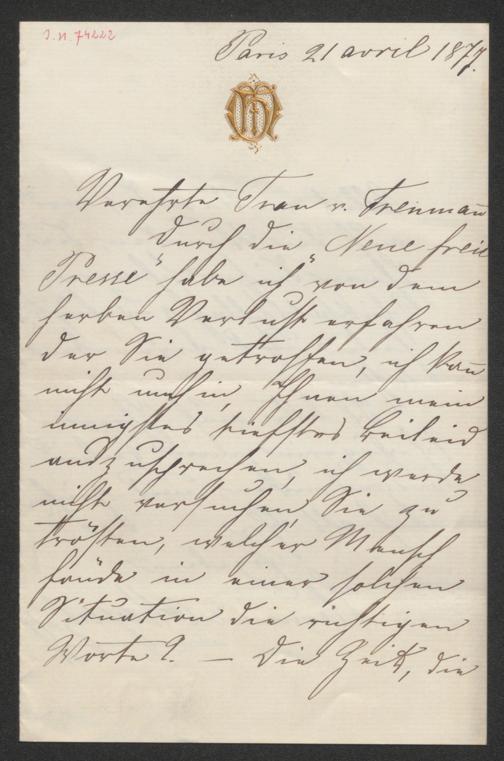 J. N 74222
Paris 21 avril 1877.
Verehrte Frau v.
durch die "Neue freie
Presse" habe ich von dem
herben Verlust erfahren
der Sie getroffen, ich kan̄
nicht umhin, Ihnen mein
innigstes tiefstes Beileid
auszusprechen, ich werde
nicht versuchen, Sie zu
trösten, welcher Mensch
fände in einer solchen
Situation die richtigen
Worte? — Die Zeit, die